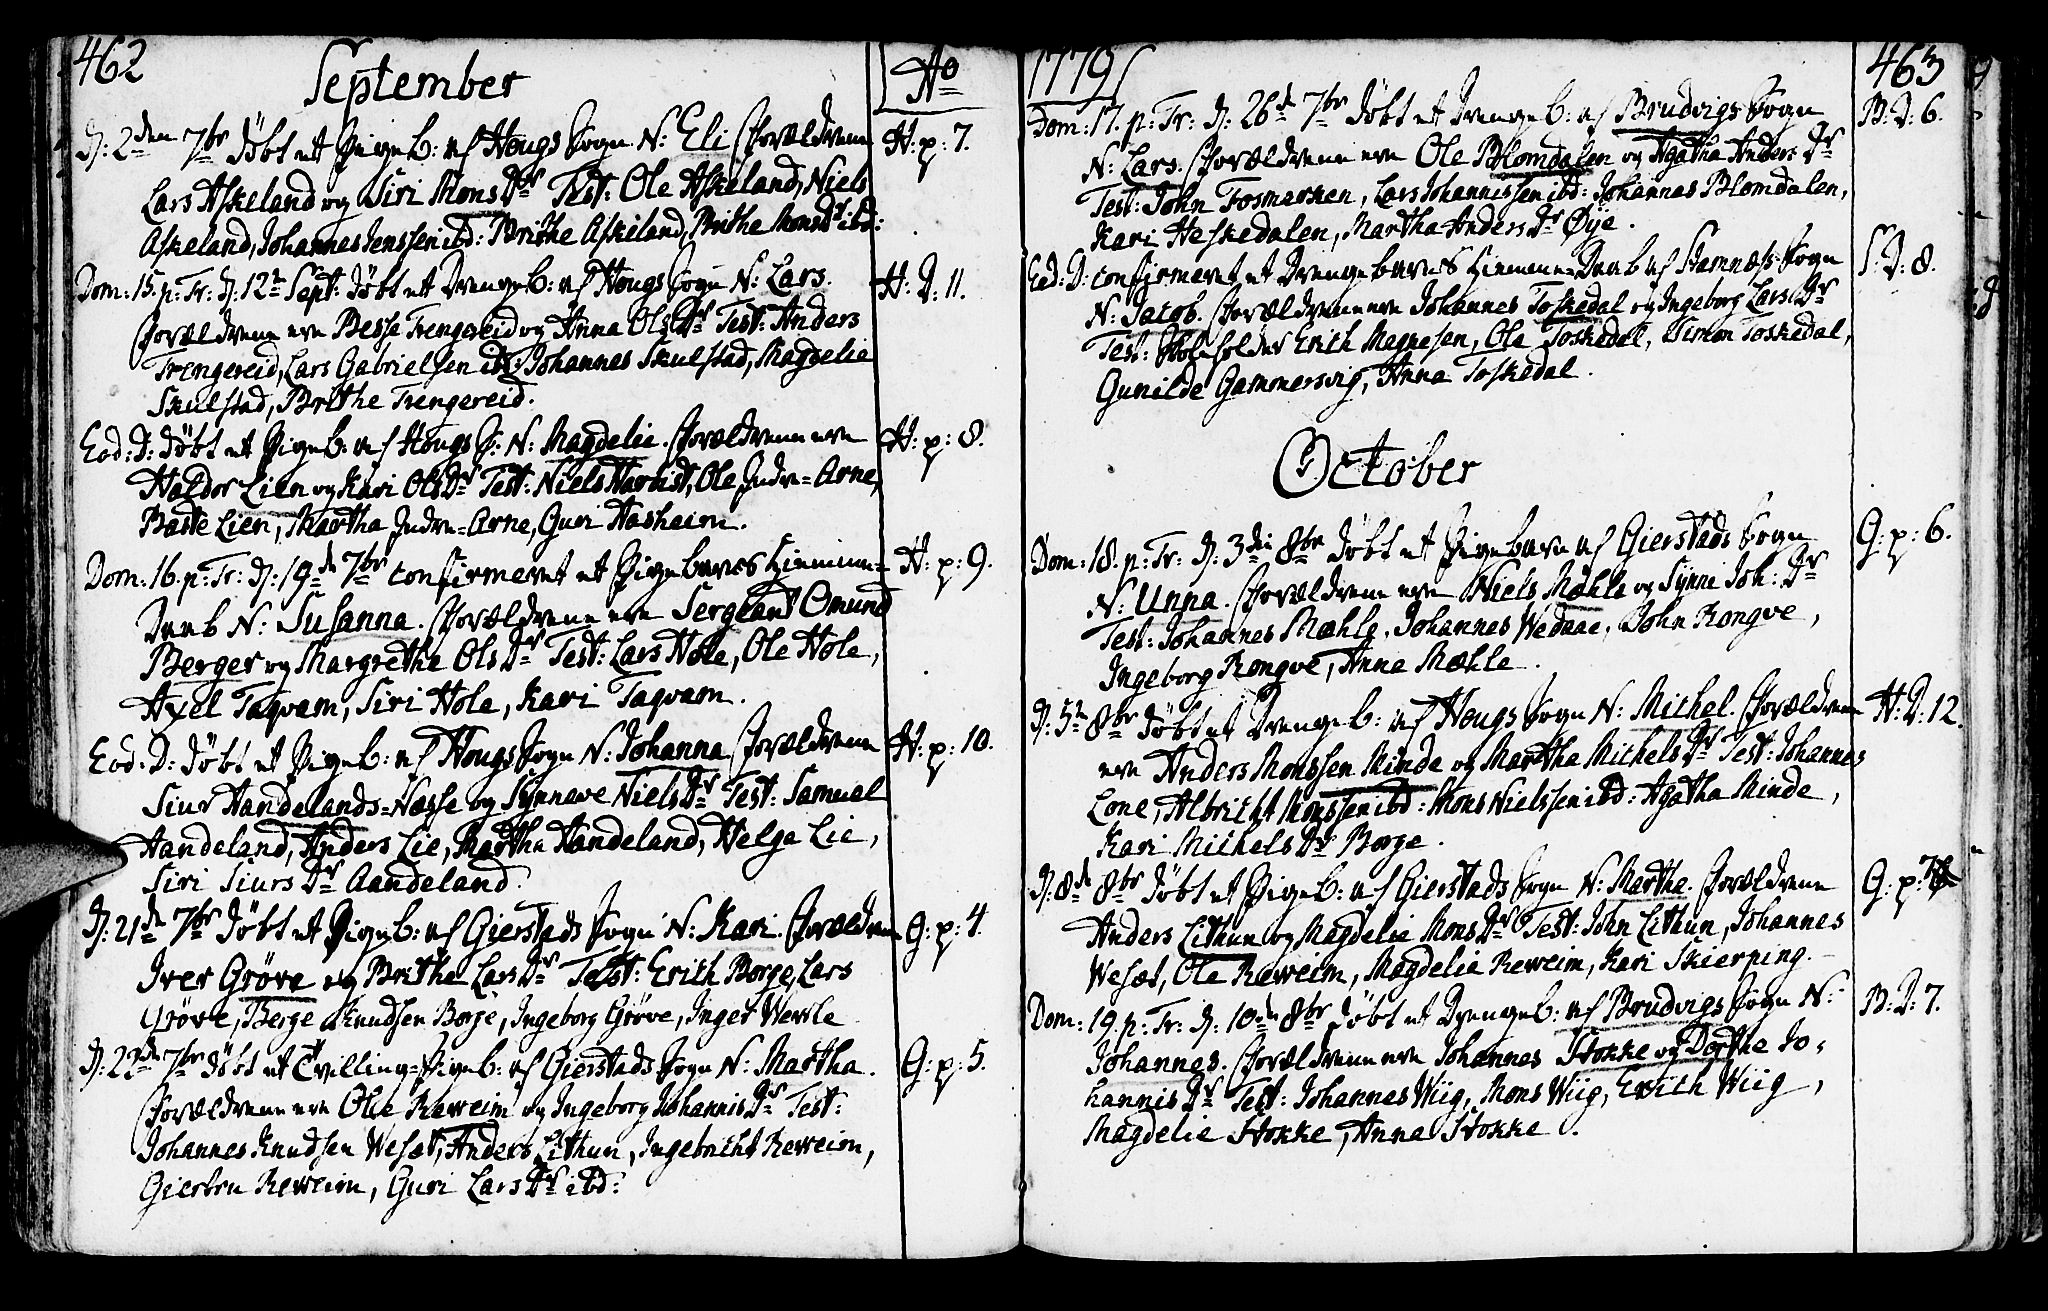 462
September
Aº
D: 2den 7br döbt et Pigeb: af Hougs Sogn N: Eli (Forældrene H: p: 7.
Lars Askeland og Siri Mons Dr Test: Ole Askeland, Niels
Askeland, Johannes Jenssen ibd: Brithe Askeland, Brithe Mons Dr ibd:
Dom: 15. p: Tr: D: 12te Sept: döbt et Drengeb: af Hougs Sogn N: Lars. H: D: 11.
Forældrene ere Besse Trengereid og Anna Ols Dr Test: Anders
Trengereid, Lars Gabrielsen ibd: Johannes Skulstad, Magdelie
Skulstad, Brithe Trengereid.
Eod: D: döbt et Pigeb: af Hougs S: N: Magdelie. Forældrene ere H: p: 8.
Haldor Lien og Kari Ols Dr Test: Niels Hartvist, Ole Indre=Arne,
Baste Lien, Martha Indre=Arne, Guri Aasheim.
Dom: 16. p: Tr: D: 19de 7br confirmeret et Pigebarns Hiemme= H: p: 9.
Daab N: Susanna. Forældrene ere Sergeant Omund
Berger og Margrethe Ols Dr Test: Lars Hole, Ole Hole,
Axel Taqvam, Siri Hole, Kari Taqvam.
Eod: D: döbt et Pigeb: af Hougs Sogn N: Johanna Forældrene H: p: 10.
Siur Aandelands=Næsse og Synneve Niels Dr Test: Samuel
Aandeland, Anders Lie, Martha Aandeland, Helge Lie,
Siri Siurs Dr Aandeland.
D: 21de 7br döbt et Pigeb: af Gierstads Sogn N: Kari. Forældrene G: p: 4.
Iver Gröve og Brithe Lars Dr Test: Erich Borge, Lars
Gröve, Berge Knudsen Borge, Ingeborg Gröve, Inger Werle
D: 23de 7br döbt et Tvilling=Pigeb: af Gierstads Sogn N: Martha. G: p: 5.
Forældrene ere Olie Reweim og Ingeborg Johannis Dr Test:
Johannes Knudsen Wesæt, Anders Lithun, Ingebricht Reweim,
Giertru Reweim, Guri Lars Dr ibd:
1779
463
Dom: 17. p: Tr: D: 26de 7br döbt et Drengeb: af Brudvigs Sogn B: D: 6.
N: Lars. Forældrene ere Ole Blomdalen og Agatha Anders Dr
Test: John Fosmarken, Lars Johannessen ibd: Johannes Blomdalen,
Kari Heskedalen, Martha Anders Dr Øye.
Eod: D: confirmeret et Drengebarns Hiemme=Daab af Stamnæs Sogn S: D: 8.
N: Jacob. Forældrene ere Johannes Toskedal og Ingeborg Lars Dr
Test: Skoleholder Erich Magnesen, Ole Toskedal, Simon Toskedal,
Gunilde Gammersvig, Anna Toskedal.
October
Dom: 18. p: Tr: D: 3die 8br döbt et Pigebarn af Gierstads Sogn G: p: 6.
N: Unna. Forældrene ere Niels Mæhle og Synni Joh: Dr
Test: Johannes Mæhle, Johannes Wedaae, John Rongve,
Ingeborg Rongve, Anna Mæhle.
D: 5te 8br döbt et Drengeb: af Hougs Sogn N: Michel. Forældrene H: D: 12.
ere Anders Monssen Minde og Martha Michels Dr Test: Johannes
Lone, Albricht Monssen ibd: Mons Nielssen ibd: Agatha Minde,
Kari Michels Dr Borge.
D: 8de 8br döbt et Pigeb: af Gierstads Sogn N: Martha. Forældrene G: p: 7
Anders Lithun og Magdelie Mons Dr Test: John Lithun, Johannes
Wesæt, Ole Reweim, Magdelie Reweim, Kari Skierping.
Dom: 19. p: Tr: D: 10de 8br döbt et Drengeb: af Brudvigs Sogn N: B: D: 7.
Johannes. Forældrene ere Johannes Stokke og Dorthe Jo=
hannis Dr Test: Johannes Wiig, Mons Wiig, Erich Wiig,
Magdelie Stokke, Anna Stokke.